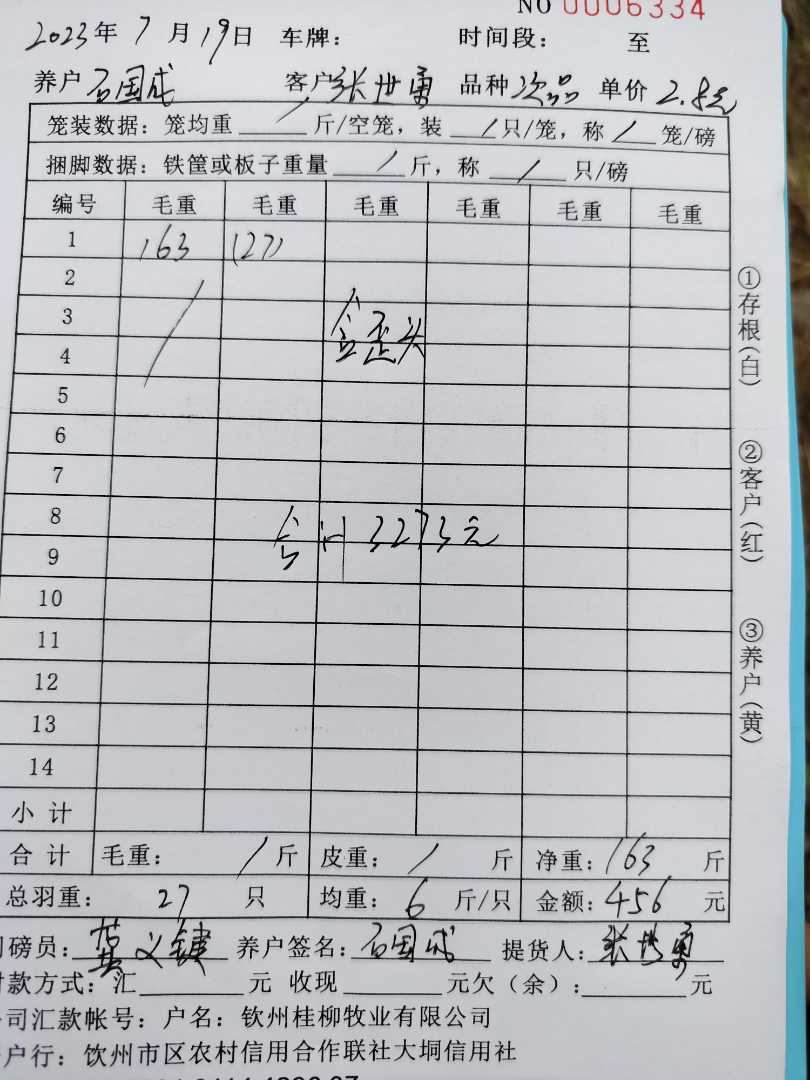 NO 0006334
2023年 7 月 19日 车牌： 时间段： 至
养户 石国成 客户 张世勇 品种 次品 单价 2.8元
笼装数据：笼均重 / 斤/空笼，装 / 只/笼，称 / 笼/磅
捆脚数据：铁筐或板子重量 / 斤，称 / 只/磅
编号 毛重 毛重 毛重 毛重 毛重 毛重
1 163 (27)
2
3
含歪头
4
5
6
7
8
合计 3273元
9
10
11
12
13
14
小计
合计 毛重： / 斤 皮重： / 斤 净重：163 斤
总羽重： 27 只 均重： 6 斤/只 金额：456 元
磅员： 义键 养户签名：石国成 提货人：张世勇
款方式：汇 元 收现 元欠（余）： 元
司汇款帐号：户名：钦州桂柳牧业有限公司
户行：钦州市区农村信用合作联社大垌信用社
①存根（白）
②客户（红）
③养户（黄）